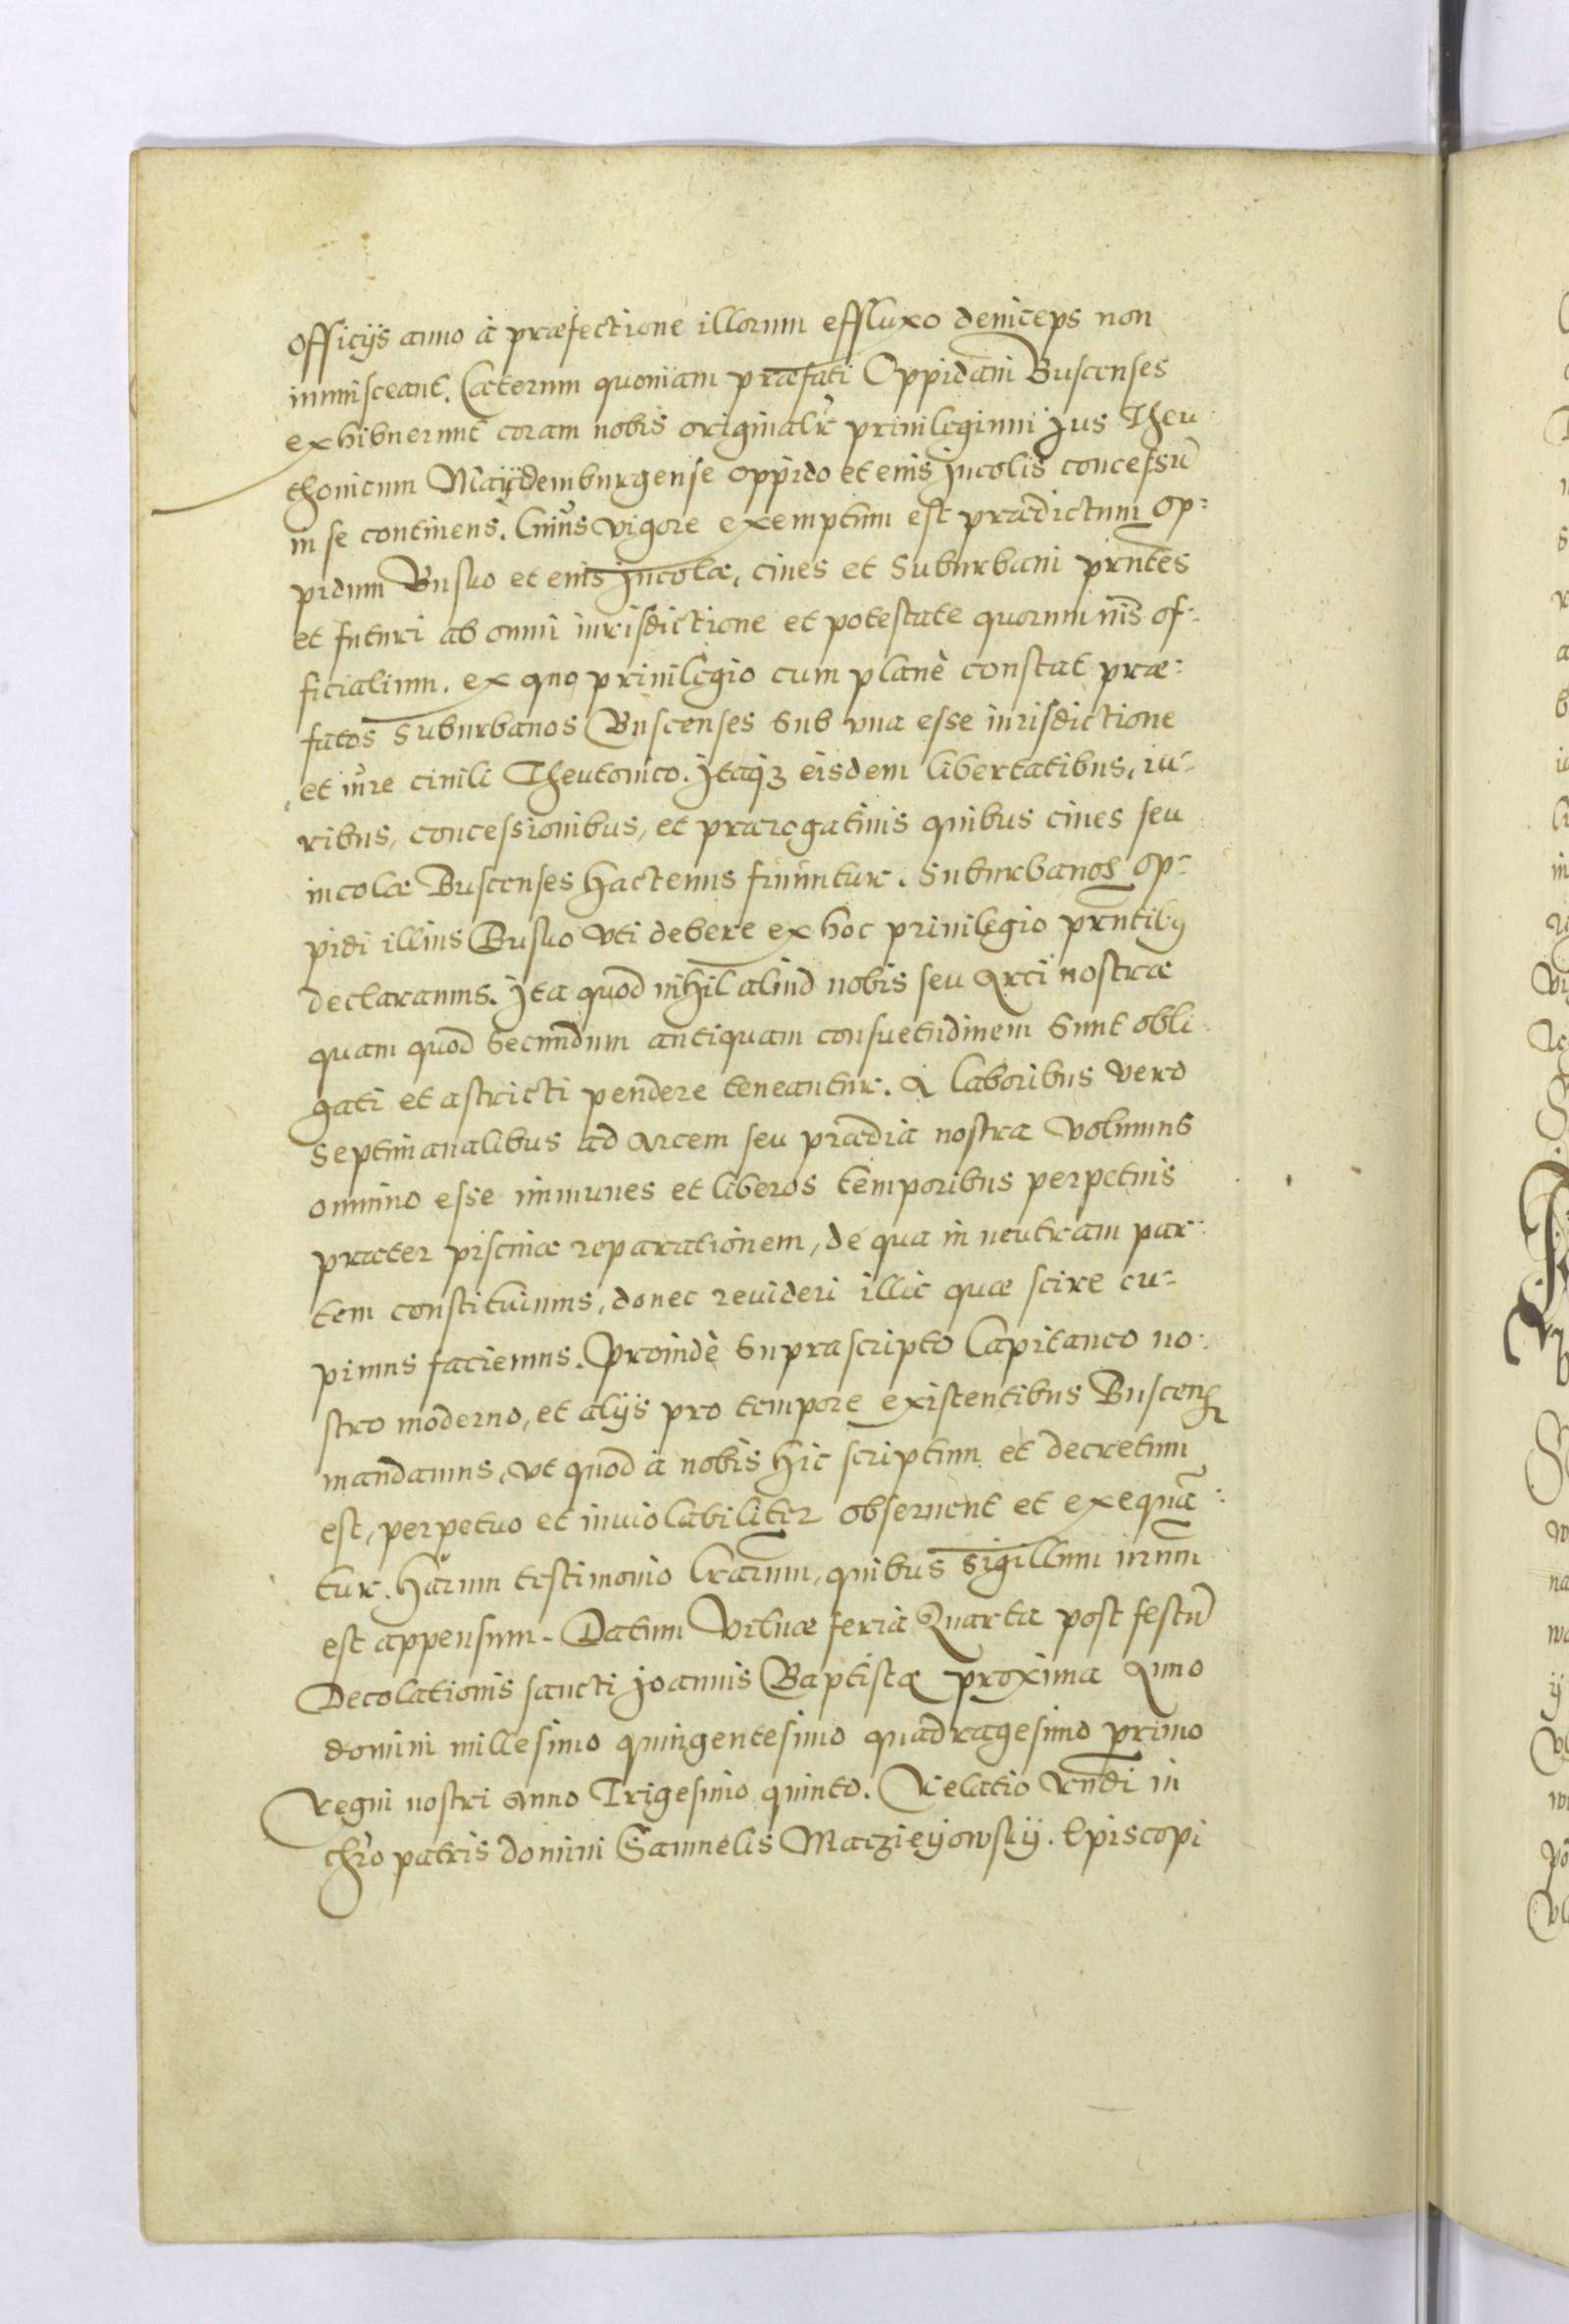 officijs anno à præfectione illorum effluxo deinceps non
immisceant. Cæterum quoniam præfati Oppidani Buscenses
exhibuerunt coram nobis originalr̃ priuilegium Jus Theu
thonicum Maÿdemburgense oppido et eius Jncolis concessũ
in se continens. Cuius vigore exemptum est prædictum op-
pidum Busko et eius Jncolæ, ciues et Suburbani prñtes
et futuri ab omni iurisdictione et potestate quorumuis of-
ficialium. ex quo priuilegio cum planè constat præ-
fatos Suburbanos Buscenses sub vna esse iurisdictione
et iure ciuili Theutonico. Jtaqꝫ eisdem libertatibus, iu-
ribus, concessionibus, et prærogatiuis quibus ciues seu
incolæ Buscenses hactenus fruuntur. Suburbanos op-
pidi illius Busko vti debere ex hoc priuilegio prñtibꝰ
declaramus. Jta quod nihil aliud nobis seu Arci nostræ
quam quod secundum antiquam consuetudinem sunt obli
gati et astricti pendere teneantur. A laboribus vero
septimanalibus ad arcem seu prædia nostra volumus
omnino esse immunes et liberos temporibus perpetuis
præter piscinæ reparationem, de qua in neutram par-
tem constituimus, donec reuideri illic quæ scire cu-
pimus faciemus. Proindè suprascripto Capitaneo no-
stro moderno, et alijs pro tempore existentibus Buscenꝭ
mandamus, vt quod à nobis hic scriptum et decretum
est, perpetuo et inuiolabiliter obseruent et exequã-
tur. Harum testimonio lrãrum, quibus sigillum nrũm
est appensum. Datum Vilnæ feria Quarta post festũ
Decolationis sancti Joannis Baptistæ proxima Anno
domini millesimo quingentesimo quadragesimo primo
Regni nostri Anno Trigesimo quinto. Relatio Rñdi in
chr̃o patris domini Samuelis Maczieyowsky. Episcopi